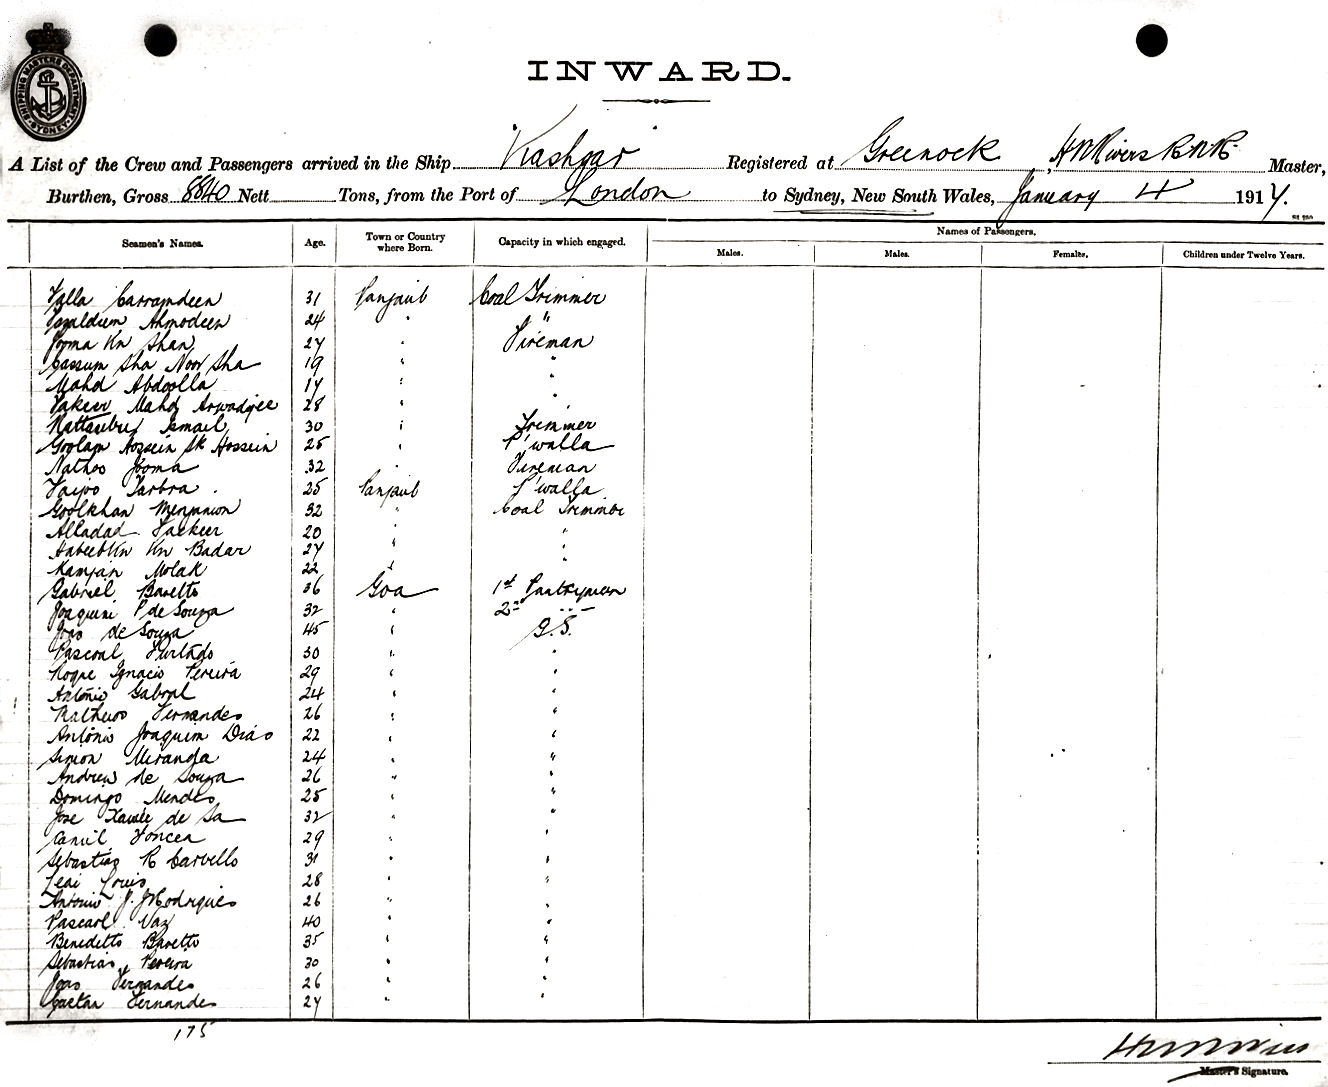 SHIPPING MASTERS DEPARTMENT SYDNEY
INWARD.
A List of the Crew and Passengers arrived in the Ship Kashgar Registered at Greenock, H N Rivers R.N.R. Master,
Burthen, Gross 8840 Nett Tons, from the Port of London to Sydney, New South Wales, January 4 1917.
Names of Passengers.
Seamen's Names. Age. Town or Country where Born. Capacity in which engaged. Males. Males. Females. Children under Twelve Years.
Carramdeen 31 Panjaub Coal Trimmer
Ahmodeen 24 " "
Jooma Kn Shan 27 " Fireman
Cassum Sha Noor Sha 19 " "
Mahd Abdoolla 17 " "
Fakeer Mahd 28 " "
Ismail 30 " Trimmer
Goolam Hossein Sk Hossein 25 " P'walla
Nathoo Jooma 32 " Fireman
25 Panjaub P'walla
Goolkhan 32 " Coal Trimmer
Alladad Fackeer 20 " "
Habeebkn Kn Badar 27 " "
Kamjan Molak 22 "
Gabriel Baretto 36 Goa 1st Pantryman
Joaquim P de Souza 32 " 2nd " 
Joao de Souza 45 " G.S.
Pascoal Furtado 30 " "
Roque Ignacio Pereira 29 " "
Antonio Gabral 24 " "
Matheus Fernandes 26 " "
Antonio Joaquim Dias 22 " "
Simon Miranda 24 " "
Andrew de Souza 26 " "
Domingo Mendes 25 " "
Jose Xavier de Sa 32 " "
29 " "
Sebastiao R Carvello 31 " "
Leai Louis 28 " "
Antonio J. J Rodrigues 26 " "
Pascoal Vaz 40 " "
Beneditto Baretto 35 " "
Sebastiao Pereira 30 " "
Joao Fernandes 26 " "
Caetan Fernandes 27 " "
175
Master's Signature.